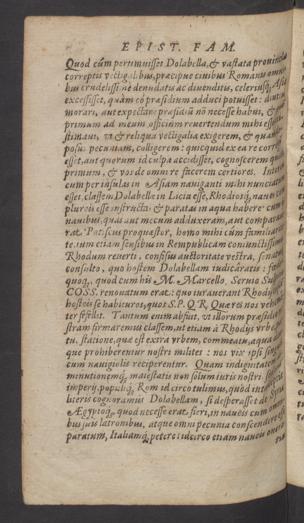 EPIST. FAM.
Quod cùm pertimuisset Dolabella, & vastata provincia
correptis vectigalibus, præcipue civibus Romanis omni-
bus crudelissimè denudatis ac divenditis, celeriusque Asia
excessisset, quàm eò præsidium adduci potuisset: diutius
morari, aut expectare præsidium nõ necesse habui, & quam
primum ad meum officium revertendum mihi esse existi-
stimavi, ut & reliqua vectigalia exigerem, & quam
posui pecuniam, colligerem: quicquid ex ea re correptum
esset, aut quorum id culpa accidisset, cognoscerem quàm
primum, & vos de omni re facerem certiores. Interim
cum per insulas in Asiam naviganti mihi nunciatum
esset, classem Dolabellæ in Lycia esse, Rhodiosque naves com-
plureis esse instructas & paratas in aqua habere: cum
navibus, quas aut mecum adduxeram, aut comparave-
rat Patiscus proquæstor, homo mihi cùm familiarita-
te tum etiam sensibus in Rempublicam coniunctissimus
Rhodum reverti, confisus auctoritate vestra, senatusque
consulto, quo hostem Dolabellam iudicaratis: fœdere
quoque, quod cum his M. Marcello, Servio Sulpicio
COSS. renovatum erat: quo iuraverant Rhodii
hostes se habituros, quos S. P. Q. R. Quæ res nos vehemen-
ter fefellit. Tantum enim abfuit, ut illorum præsidio no-
stram firmaremus classem, ut etiam à Rhodiis urbe, por-
tu, statione, quæ est extra urbem, commeatu, aqua deni-
que prohiberentur nostri milites: nos vix ipsi singulis
cum navigiolis reciperemur. Quam indignitatem
minutionemque maiestatis non solum iuris nostri
imperii populique Rom. idcirco tulimus, quòd
literis cognoramus Dolabellam, si desperasset de Syria
Ægyptoque, quod necesse erat fieri, in naveis cum omni-
bus suis latronibus, atque omni pecunia conscendere esse
paratum, Italiamque petere: idcirco etiam naveis onera